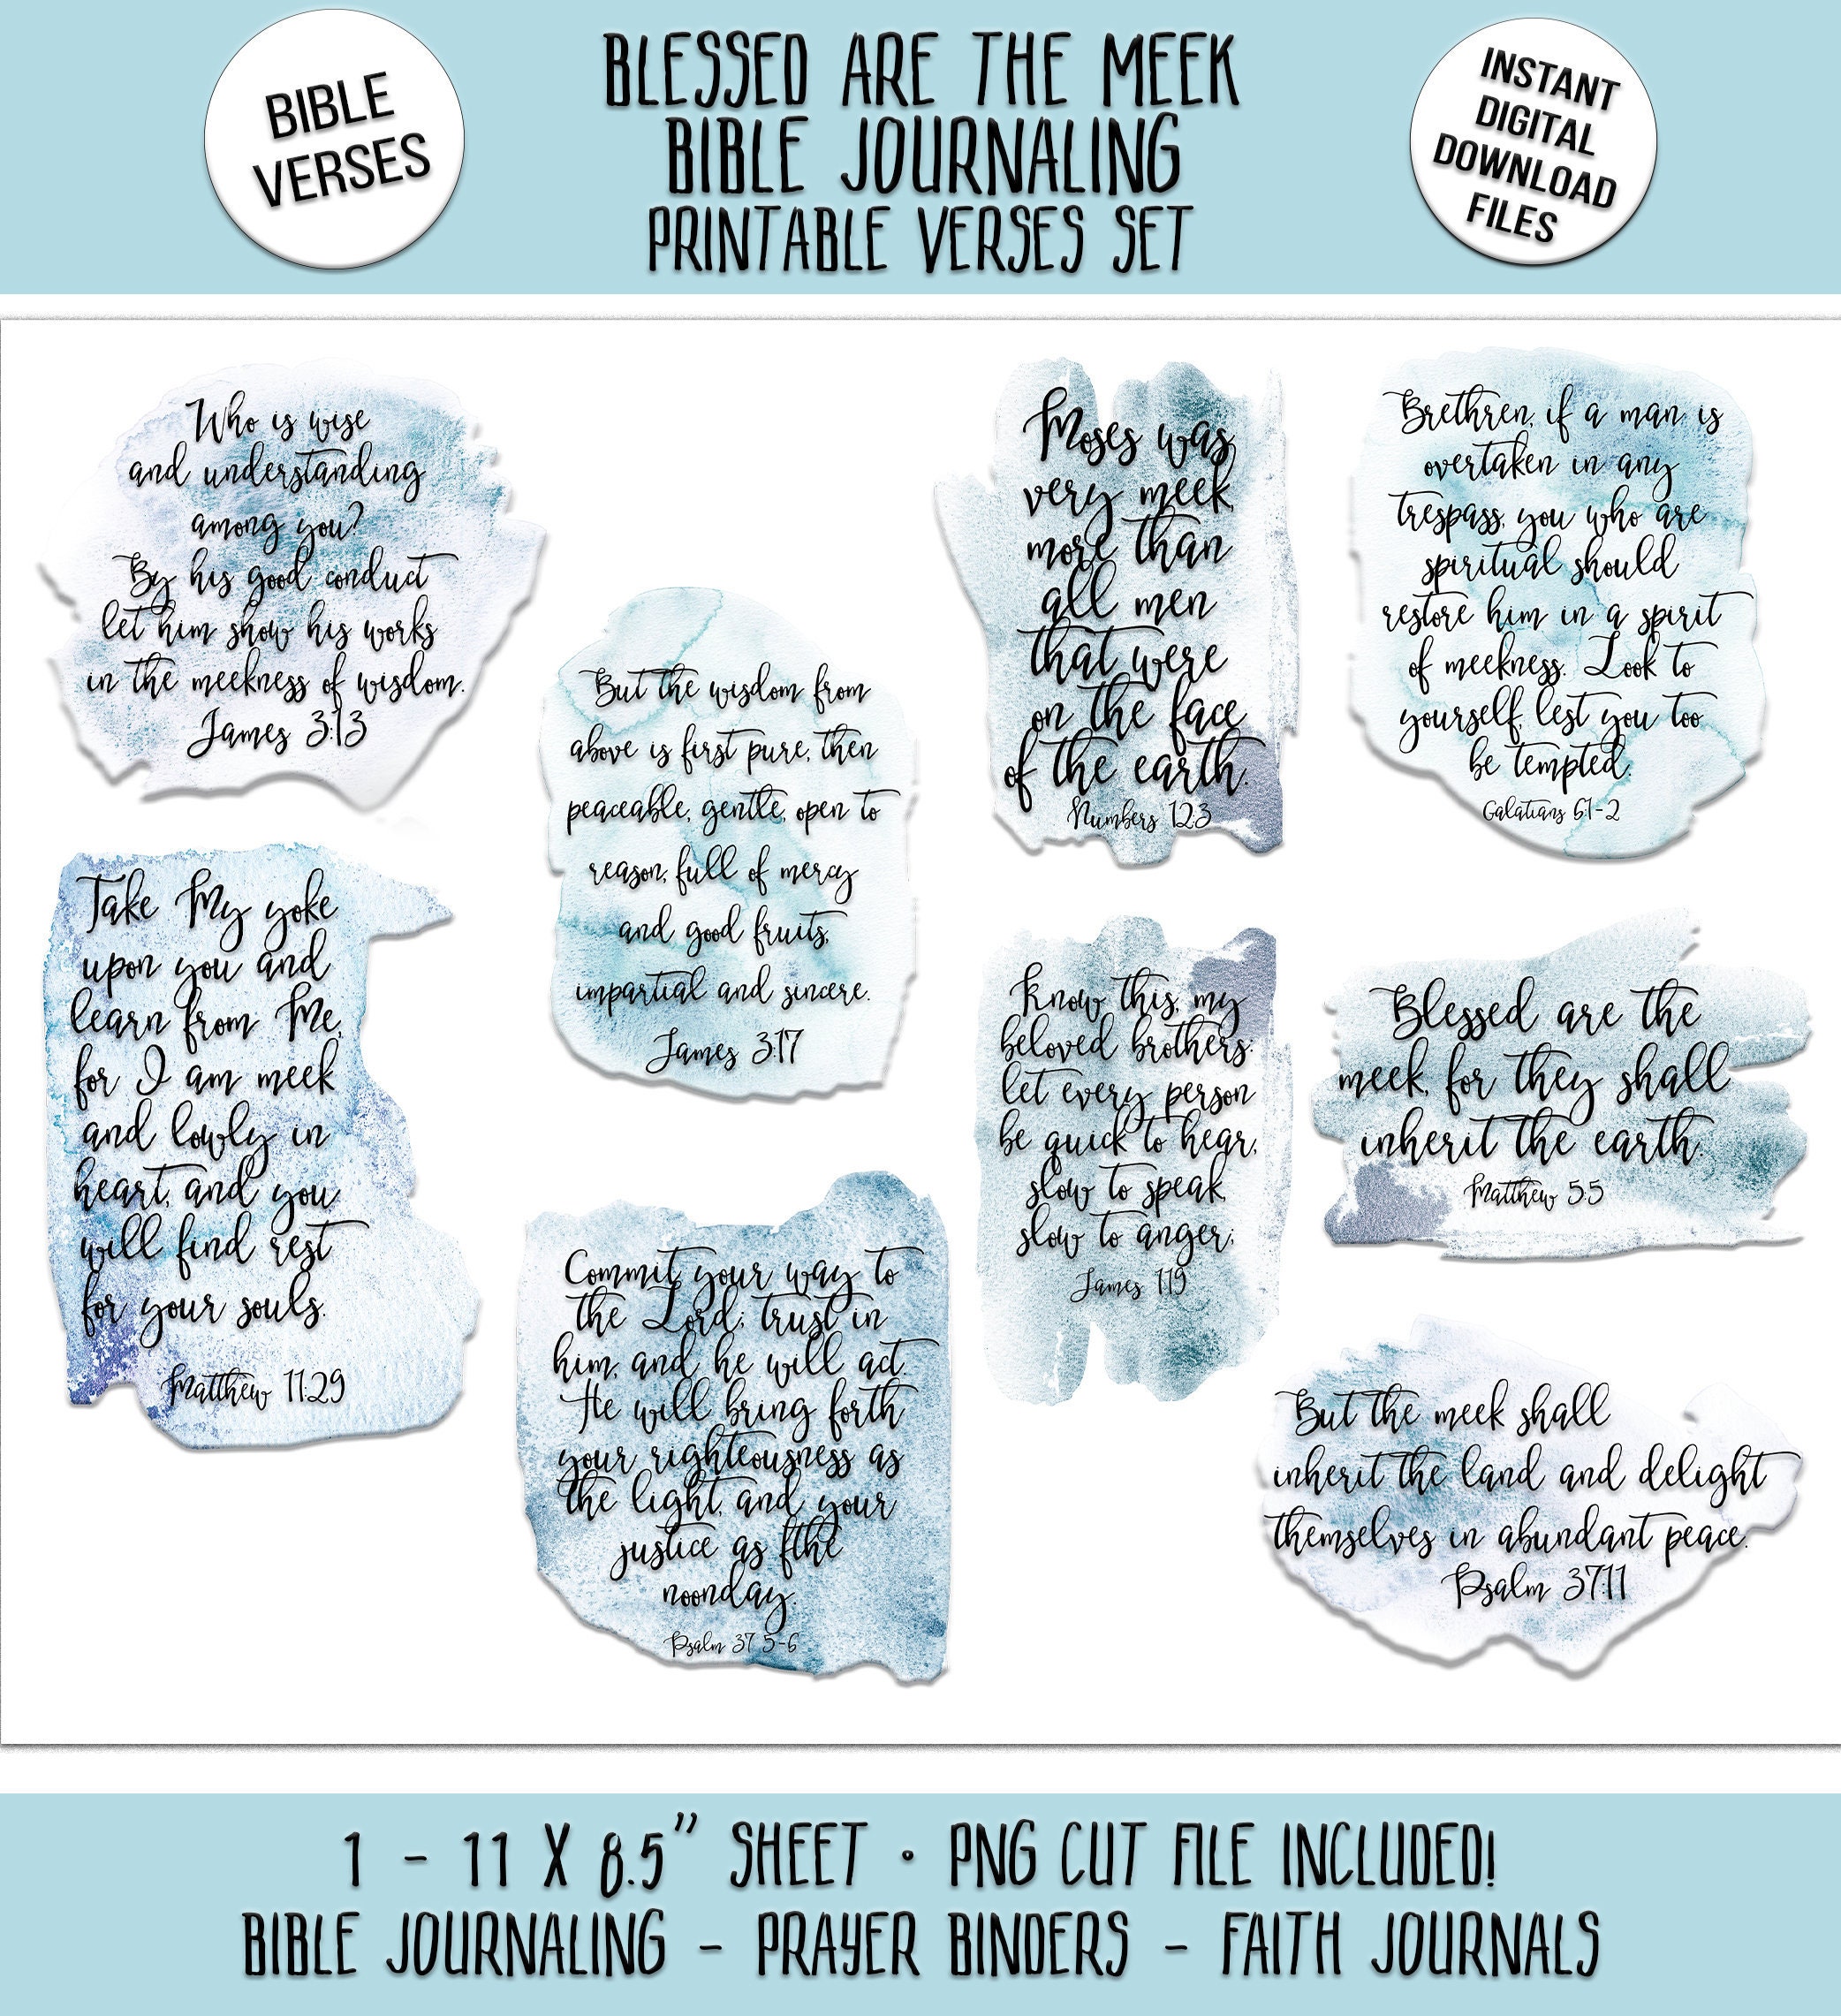 BIBLE
VERSES
BLESSED ARE THE MEEK
BIBLE JOURNALING
PRINTABLE VERSES SET
INSTANT
DIGITAL
DOWNLOAD
FILES
Who is wise
and understanding
among you?
By his good conduct
let him show his works
in the meekness of wisdom.
James 3:13
But the wisdom from
above is first pure, then
peaceable, gentle, open to
reason, full of mercy
and good fruits,
impartial and sincere.
James 3:17
Moses was
very meek,
more than
all men
that were
on the face
of the earth.
Numbers 12:3
Brethren, if a man is
overtaken in any
trespass, you who are
spiritual should
restore him in a spirit
of meekness. Look to
yourself, lest you too
be tempted.
Galatians 6:1-2
Take My yoke
upon you and
learn from Me,
for I am meek
and lowly in
heart, and you
will find rest
for your souls.
Matthew 11:29
Commit your way to
the Lord; trust in
him, and he will act.
He will bring forth
your righteousness as
the light, and your
justice as fthe
noonday.
Psalm 37 5-6
Know this, my
beloved brothers:
let every person
be quick to hear,
slow to speak,
slow to anger;
James 1:19
Blessed are the
meek, for they shall
inherit the earth.
Matthew 5:5
But the meek shall
inherit the land and delight
themselves in abundant peace.
Psalm 37:11
1 - 11 X 8.5" SHEET • PNG CUT FILE INCLUDED!
BIBLE JOURNALING - PRAYER BINDERS - FAITH JOURNALS